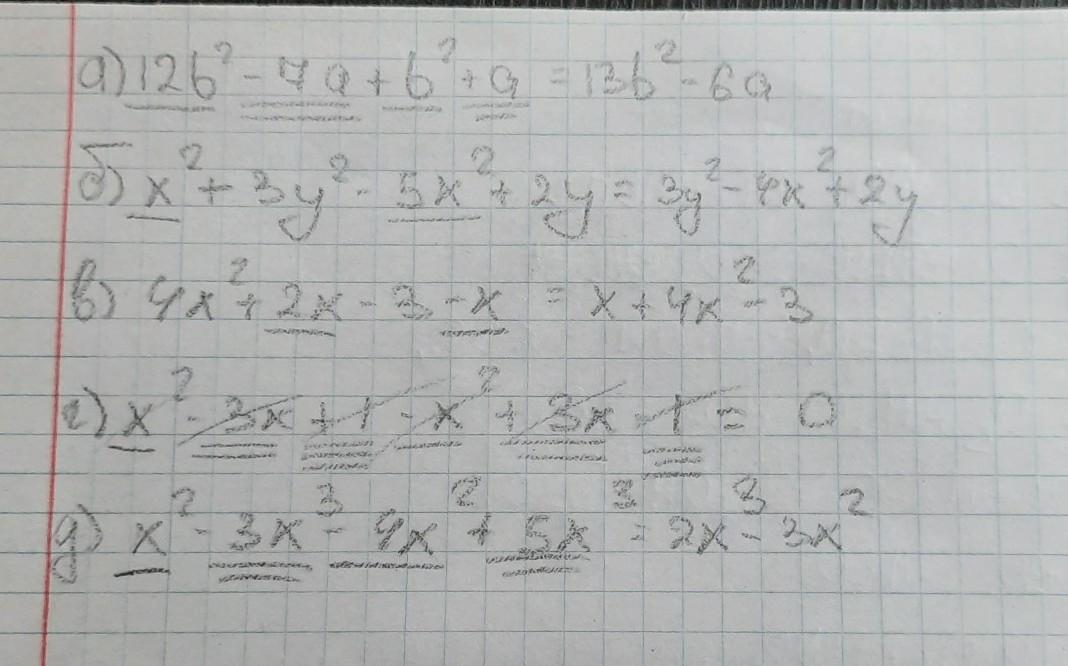 а) 12b² - 7a + b² + a = 13b² - 6a
б) x² + 3y² - 5x² + 2y = 3y² - 4x² + 2y
в) 4x² + 2x - 3 - x = x + 4x² - 3
г) x² - 3x + 1 - x² + 3x - 1 = 0
д) x² - 3x³ - 4x² + 5x³ = 2x³ - 3x²